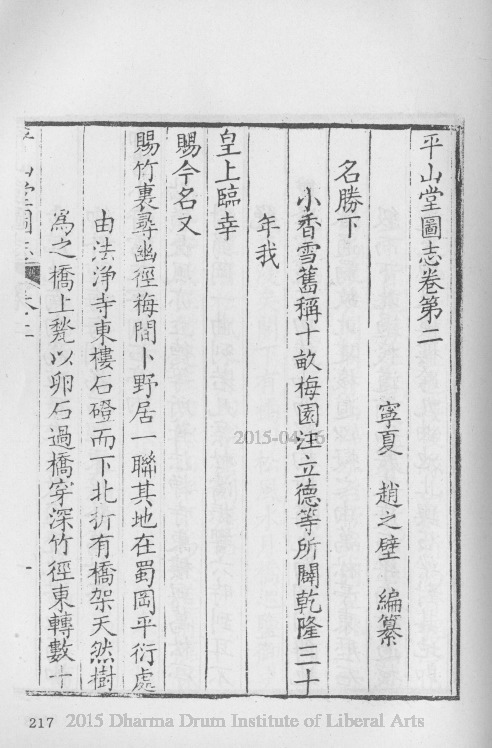 平山堂圖志卷第二
寧夏 趙之壁 編纂
名勝下
小香雪舊稱十畝梅園汪立德等所闢乾隆三十
年我
皇上臨幸
賜今名又
賜竹裏尋幽徑梅間卜野居一聯其地在蜀岡平衍處
由法淨寺東樓石磴而下北折有橋架天然樹
為之橋上甃以卵石過橋穿深竹徑東轉數十
平山堂圖志 卷二
一
2015-04-16
217
2015 Dharma Drum Institute of Liberal Arts